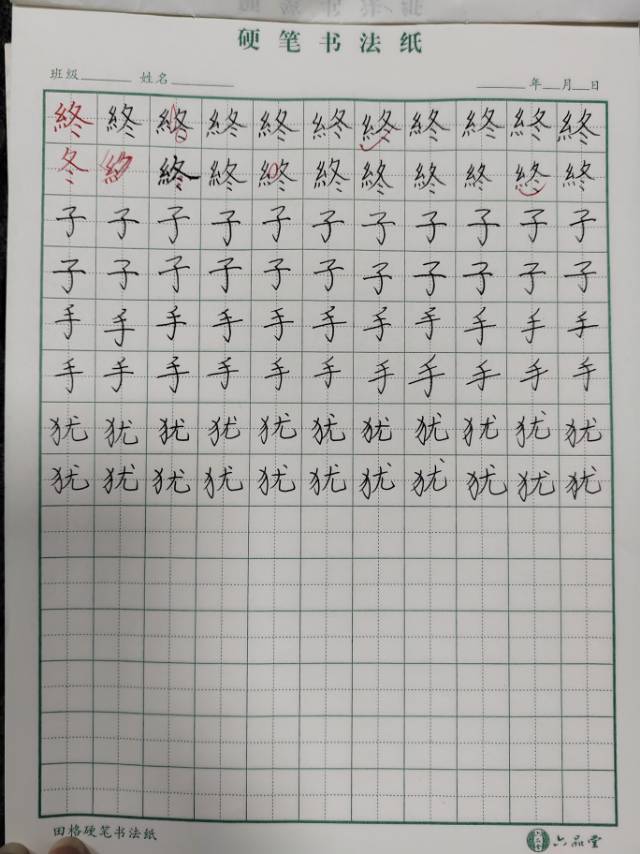 硬笔书法纸
班级 姓名 年 月 日
終 終 終 終 終 終 終 終 終 終 終
冬 終 終 終 終 終 終 終 終 終
子 子 子 子 子 子 子 子 子 子 子
子 子 子 子 子 子 子 子 子 子 子
手 手 手 手 手 手 手 手 手 手 手
手 手 手 手 手 手 手 手 手 手 手
犹 犹 犹 犹 犹 犹 犹 犹 犹 犹 犹
犹 犹 犹 犹 犹 犹 犹 犹 犹 犹 犹
田格硬笔书法纸 六品堂 六品堂